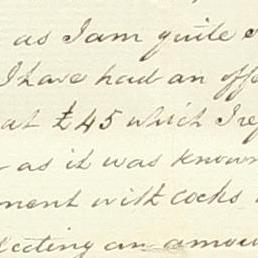 as I am quite
I have had an
at £45 which I
as it was known
ment with cocks
lecting an amou